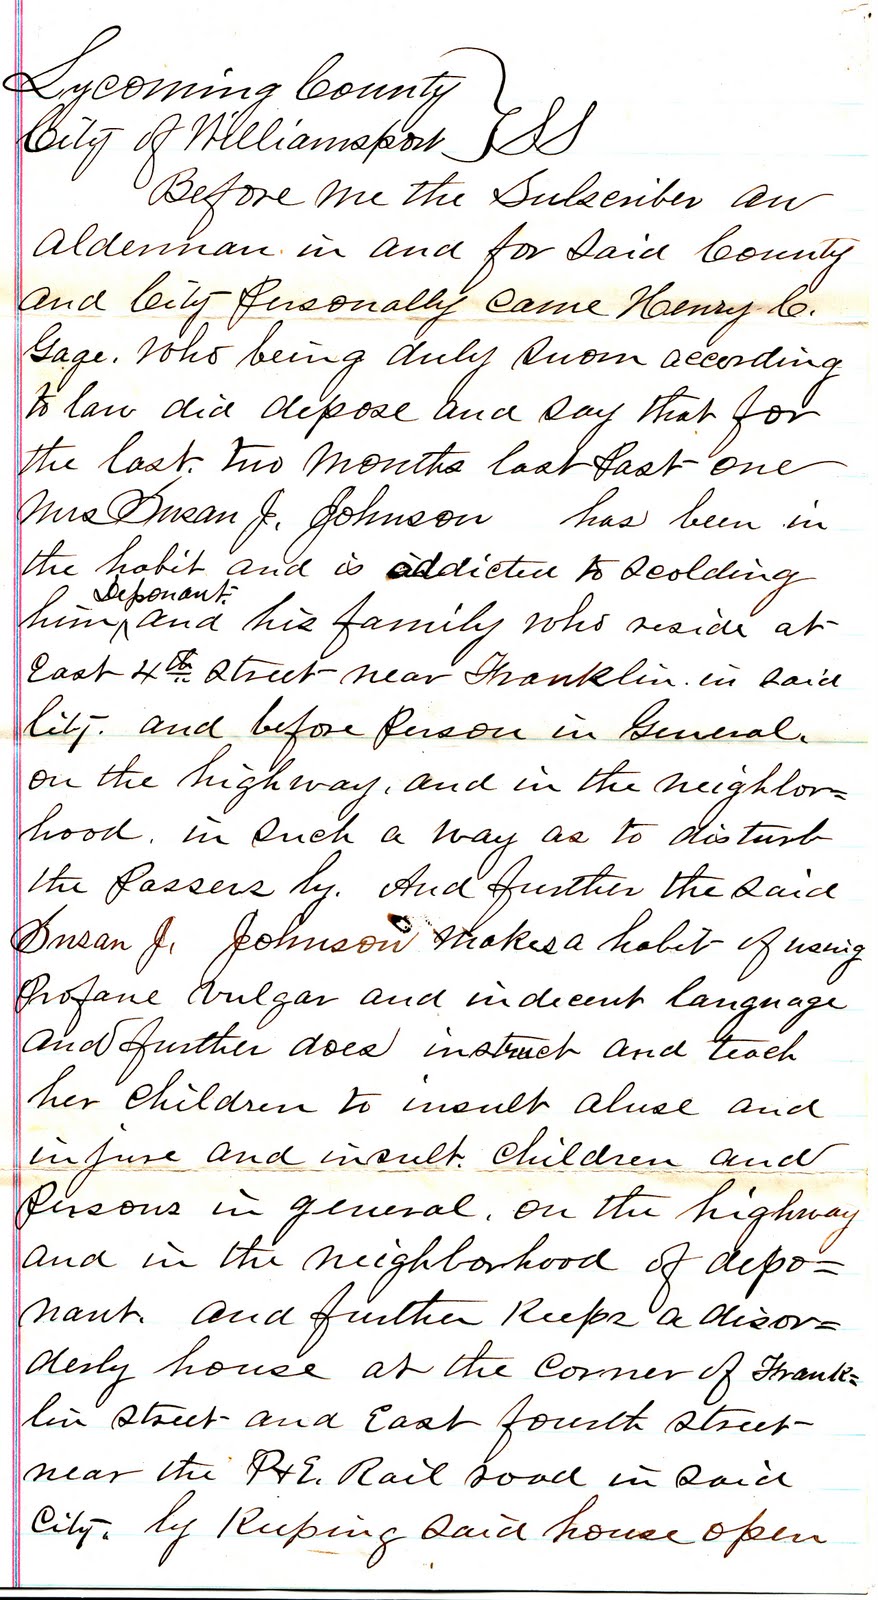 Lycoming County
City of Williamsport } SS
Before me the Subscriber an
Alderman in and for said County
and City Personally came Henry C.
Gage. Who being duly sworn according
to law did depose and say that for
the last. two Months last Past one
Mrs Susan J. Johnson has been in
the habit and is addicted to scolding
Deponant.
him ^ and his family who reside at
East 4th. Street near Franklin. in said
City. and before Person in General.
on the highway. and in the neighbor=
hood. in such a way as to disturb
the Passers by. And further the said
Susan J. Johnson Makes a habit of using
Profane Vulgar and indecent language
and further does instruct and teach
her Children to insult abuse and
injure and insult. Children and
Persons in general. on the highway
and in the neighborhood of depo=
nant. and further Keeps a disor=
derly house at the Corner of Frank=
lin Street and East fourth Street
near the P&E. Rail road in said
City. by Keeping said house open